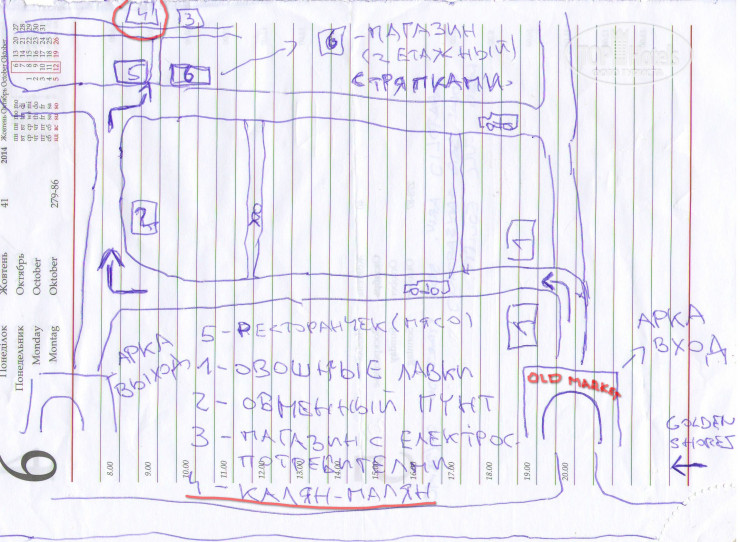 4
3
6 - МАГАЗИН
(2 ЕТАЖНЫЙ)
С ТРЯПКАМИ.
5
6
2
1
1
5 - РЕСТОРАНЧЕК (МЯСО)
1 - ОВОШНЫЕ ЛАВКИ
2 - ОБМЕННЫЙ ПУНТ
3 - МАГАЗИН С ЕЛЕКТРОС-
ПОТРЕБИТЕЛНИ
4 - КАЛЯН-МАЛЯН
АРКА
ВЫХОД
OLD MARKET
АРКА
ВХОД.
GOLDEN
SHORES
6
Понеділок
Понедельник
Monday
Montag
Жовтень
Октябрь
October
Oktober
41
279-86
2014
Жовтень Октябрь October Oktober
8.00
9.00
10.00
11.00
12.00
13.00
14.00
15.00
16.00
17.00
18.00
19.00
20.00